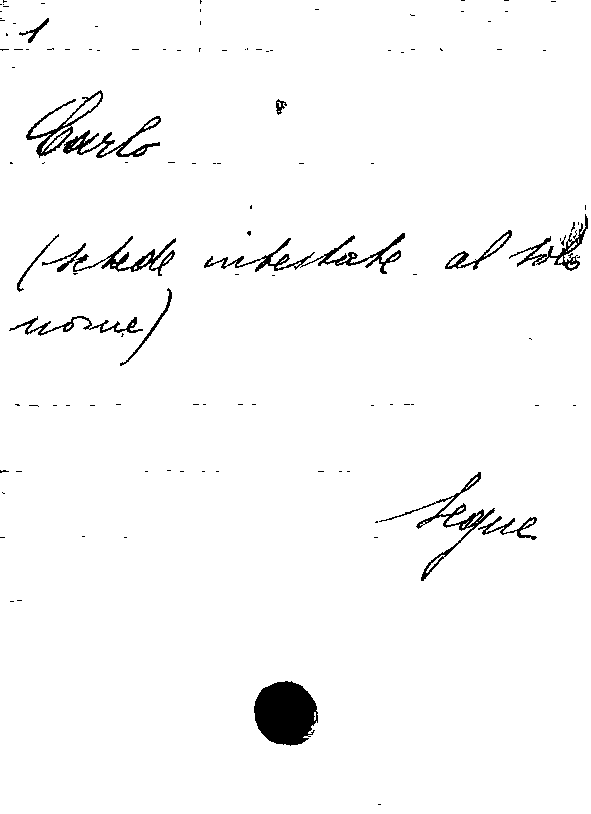 1
Carlo
(schede intestate al solo
nome)
segue